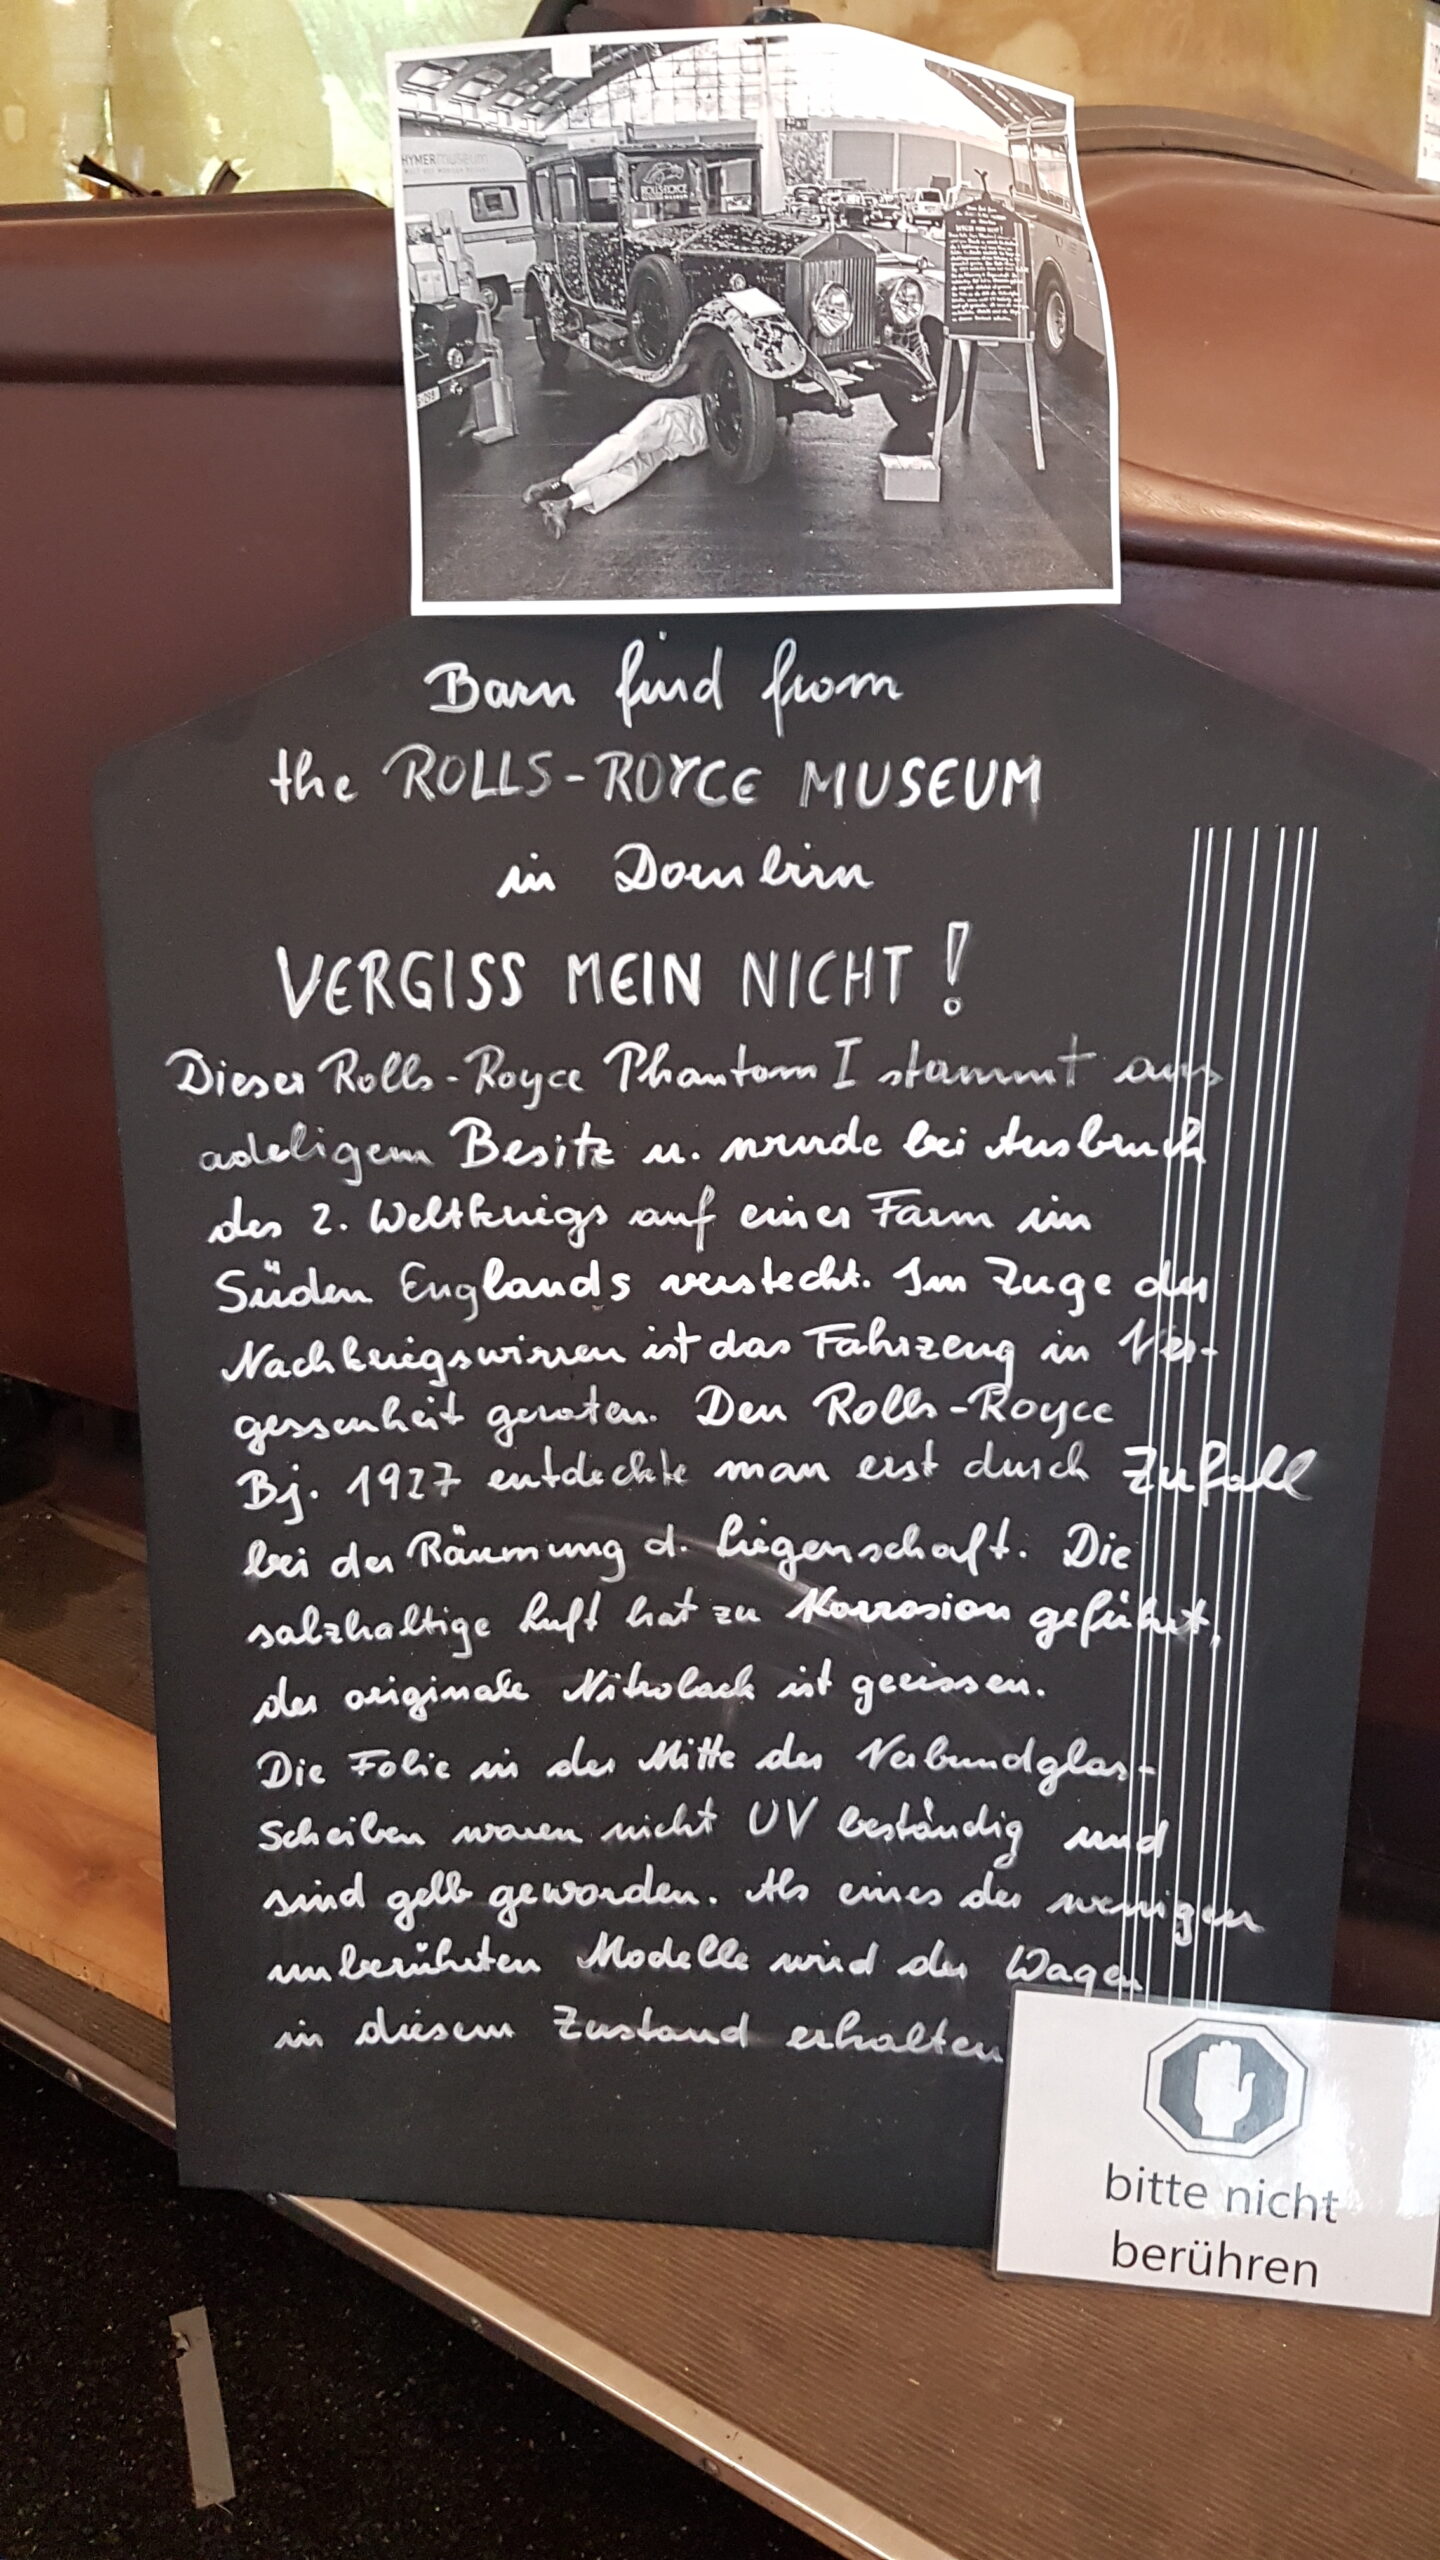 HYMERmuseum
ROLLS-ROYCE
Barn find from
the ROLLS-ROYCE MUSEUM
in Dornbirn
VERGISS MEIN NICHT!
Dieser Rolls-Royce Phantom I stammt aus
adeligem Besitz u. wurde bei Ausbruch
des 2. Weltkriegs auf einer Farm im
Süden Englands versteckt. Im Zuge der
Nachkriegswirren ist das Fahrzeug in Ver-
gessenheit geraten. Den Rolls-Royce
Bj. 1927 entdeckte man erst durch Zufall
bei der Räumung d. Liegenschaft. Die
salzhaltige Luft hat zu Korrosion geführt,
der originale Nitrolack ist gerissen.
Die Folie in der Mitte der Verbundglas-
Scheiben waren nicht UV beständig und
sind gelb geworden. Als eines der wenigen
unberührten Modelle wird der Wagen
in diesem Zustand erhalten
bitte nicht
berühren